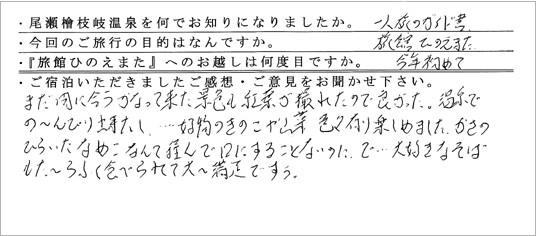 ・尾瀬檜枝岐温泉を何でお知りになりましたか。 一人旅のガイド書
・今回のご旅行の目的はなんですか。 旅館ひのえまた
・『旅館ひのえまた』へのお越しは何度目ですか。 今年初めて
・ご宿泊いただきましたご感想・ご意見をお聞かせ下さい。
また雨に今うなって来た景色も紅葉が撮れたので良かった。温泉で
の～んびり出来たし、…好物のきのこや山菜色々有り楽しめました。かさの
ひらいたなめこなんて摘んで口にすることないのに、で…大好きなそば
もた～らふく食べられて大～満足です。